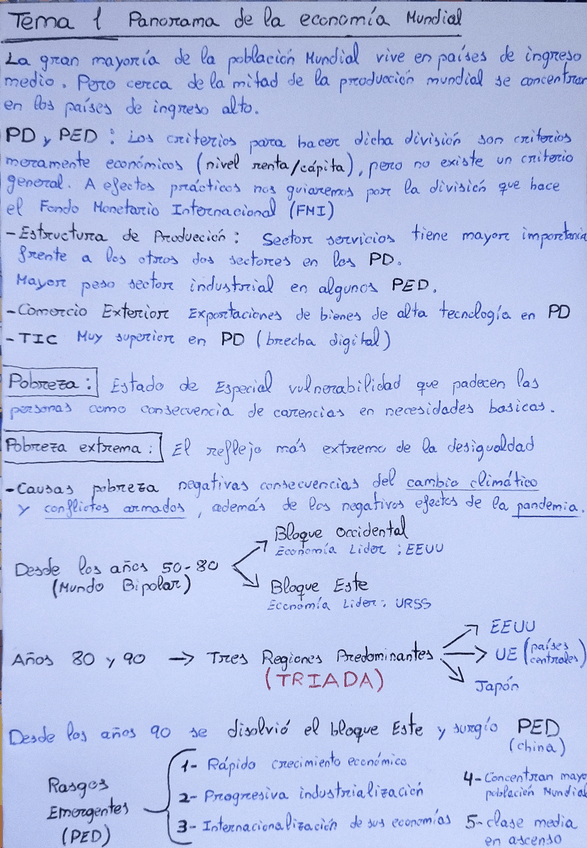 Tema 1 Panorama de la economía Mundial
La gran mayoría de la población Mundial vive en países de ingreso
medio. Pero cerca de la mitad de la producción mundial se concentran
en los países de ingreso alto.
PD y PED : Los criterios para hacer dicha división son criterios
meramente económicos (nivel renta/cápita), pero no existe un criterio
general. A efectos prácticos nos guiaremos por la división que hace
el Fondo Monetario Internacional (FMI)
- Estructura de Producción : Sector servicios tiene mayor importancia
frente a los otros dos sectores en los PD.
Mayor peso sector industrial en algunos PED.
- Comercio Exterior Exportaciones de bienes de alta tecnología en PD
- TIC Muy superior en PD (brecha digital)
Pobreza : Estado de Especial vulnerabilidad que padecen las
personas como consecuencia de carencias en necesidades basicas.
Pobreza extrema : El reflejo más extremo de la desigualdad
- Causas pobreza negativas consecuencias del cambio climático
y conflictos armados, además de los negativos efectos de la pandemia.
Bloque Occidental
Economía Lider : EEUU
Desde los años 50-80
(Mundo Bipolar)
Bloque Este
Economía Lider : URSS
Años 80 y 90 → Tres Regiones Predominantes
(TRIADA)
EEUU
UE (países centrales)
Japón
Desde los años 90 se disolvió el bloque Este y surgío PED
(china)
Rasgos
Emergentes
(PED)
1- Rápido crecimiento económico
2- Progresiva industrialización
3- Internacionalización de sus economías
4- Concentran mayor
población Mundial
5- clase media
en ascenso